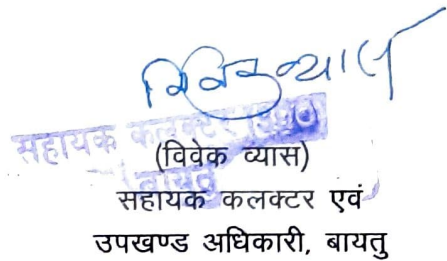 विवेक व्यास
सहायक कलक्टर
(विवेक व्यास)
बायतु
सहायक कलक्टर एवं
उपखण्ड अधिकारी, बायतु